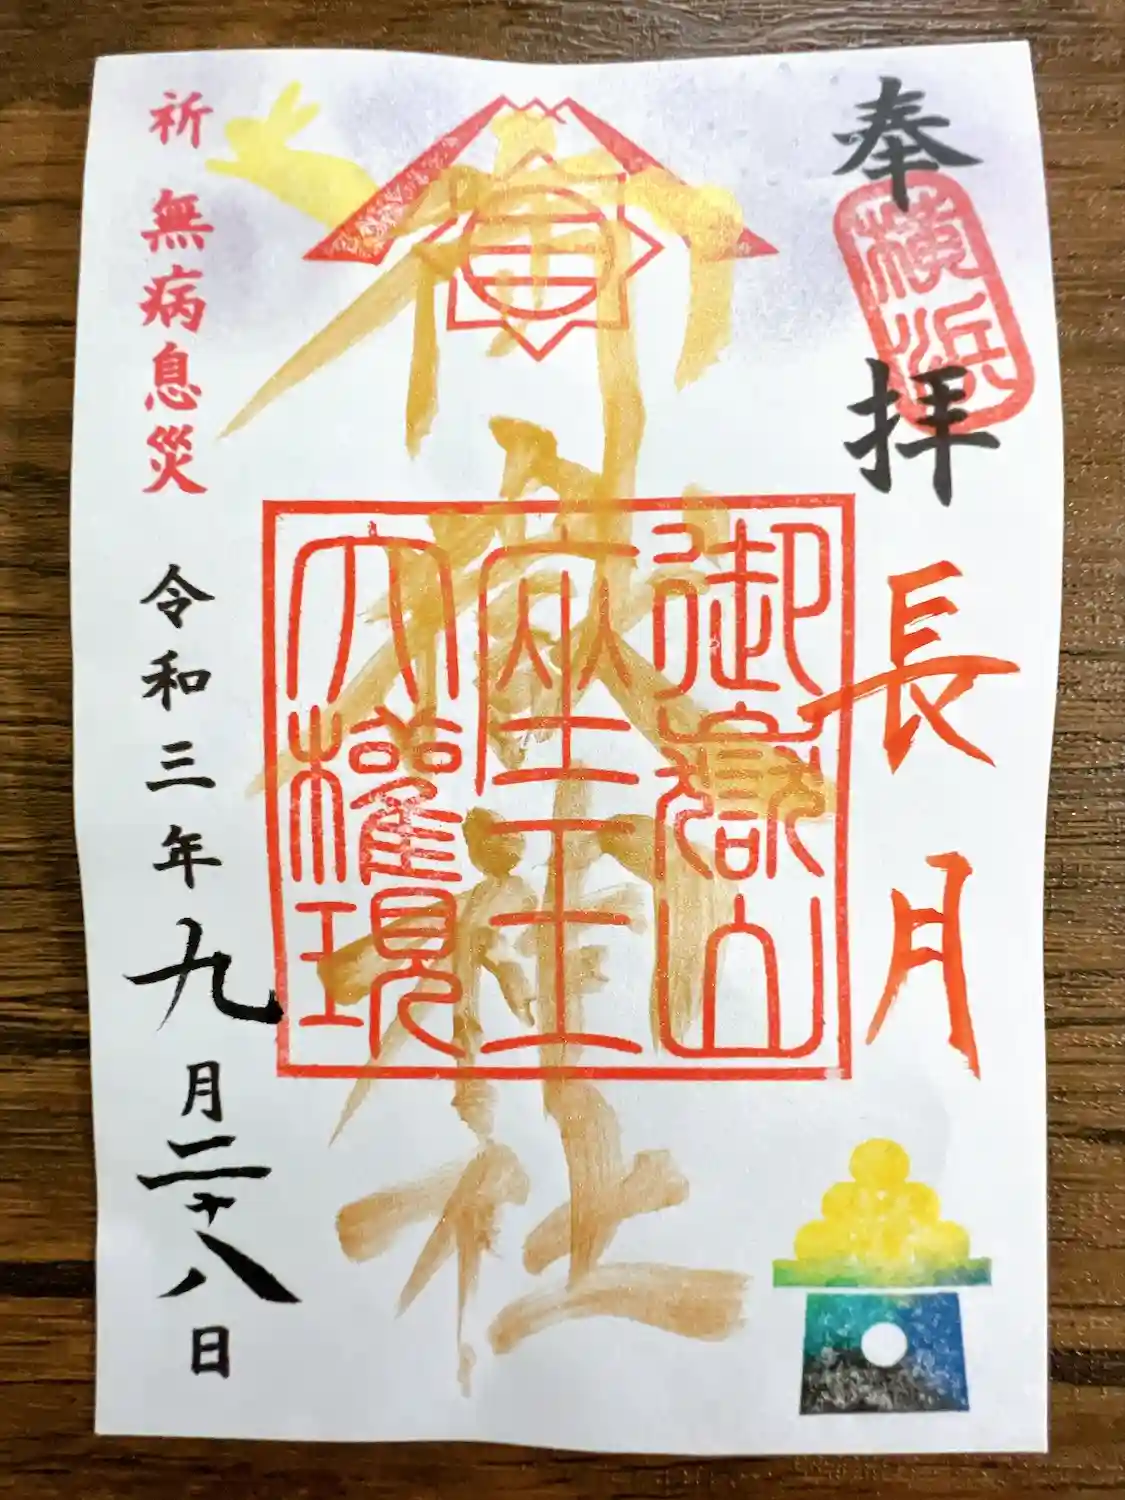 奉拝
横浜
長月
御嶽神社
御嶽山
座王
大權現
祈 無病息災
令和三年九月二十八日